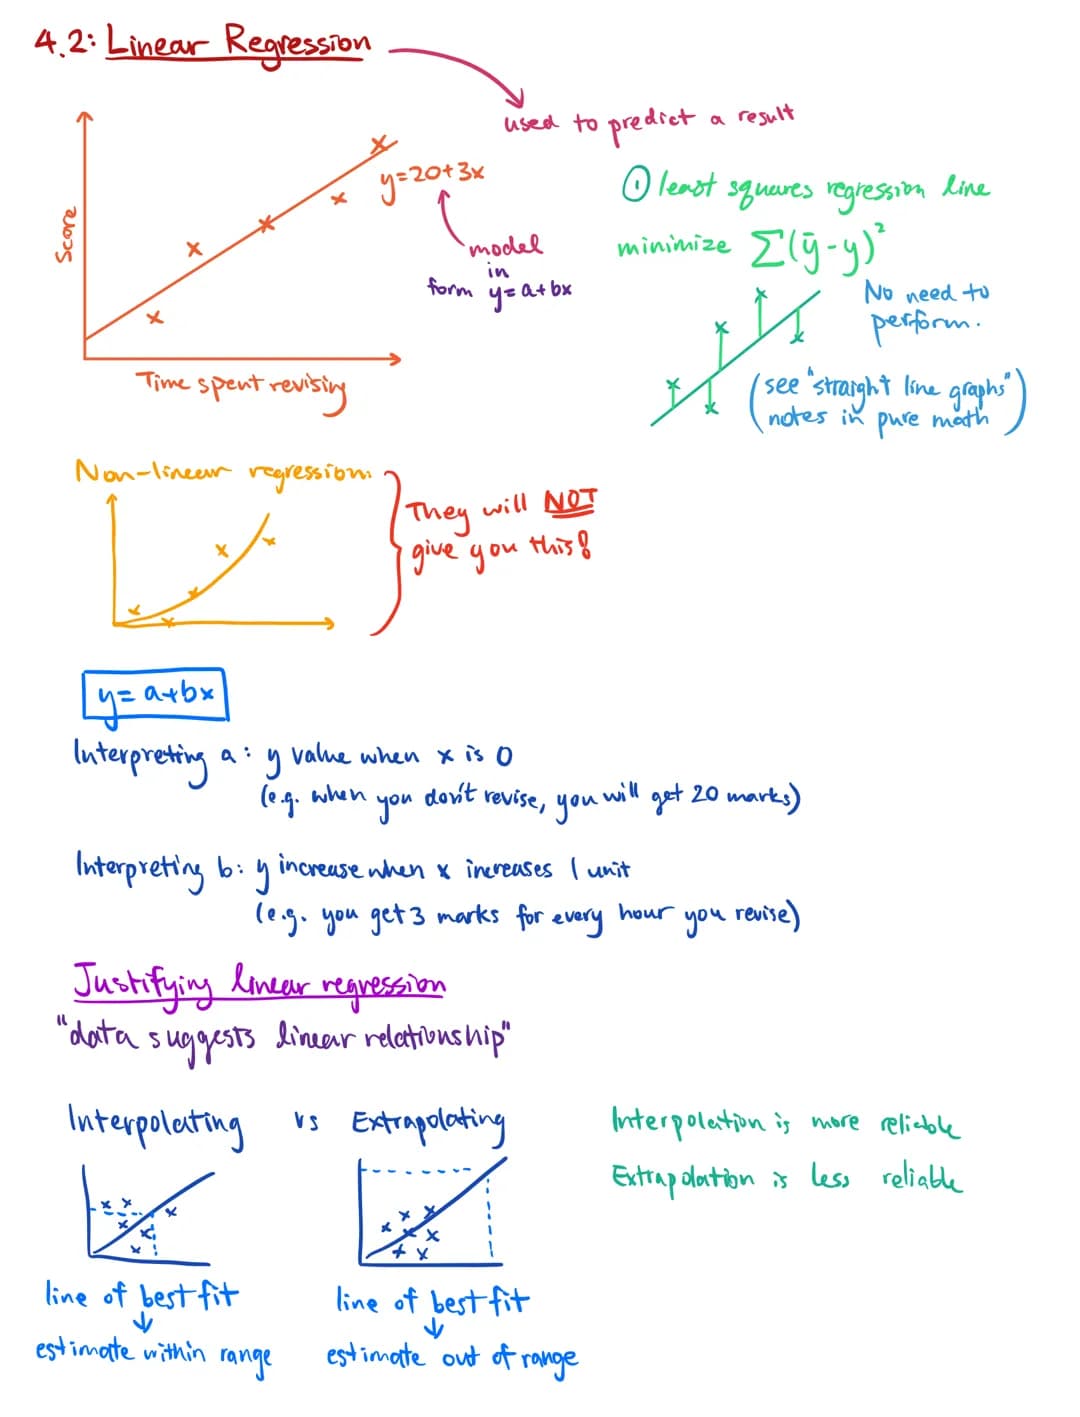 4.2: Linear Regression
used to predict a result
Score
y=20+3x
model
in
form y=a+bx
Time spent revising
① least squares regression line
minimize Σ(ȳ-y)²
No need to
perform.
(see "straight line graphs"
notes in pure math)
Non-linear regression:
They will NOT
give you this!
y=a+bx
Interpreting a: y value when x is 0
(e.g. when you don't revise, you will get 20 marks)
Interpreting b: y increase when x increases 1 unit
(e.g. you get 3 marks for every hour you revise)
Justifying linear regression
"data suggests linear relationship"
Interpolating vs Extrapolating
Interpolation is more reliable
Extrapolation is less reliable
line of best fit
↓
estimate within range
line of best fit
↓
estimate out of range